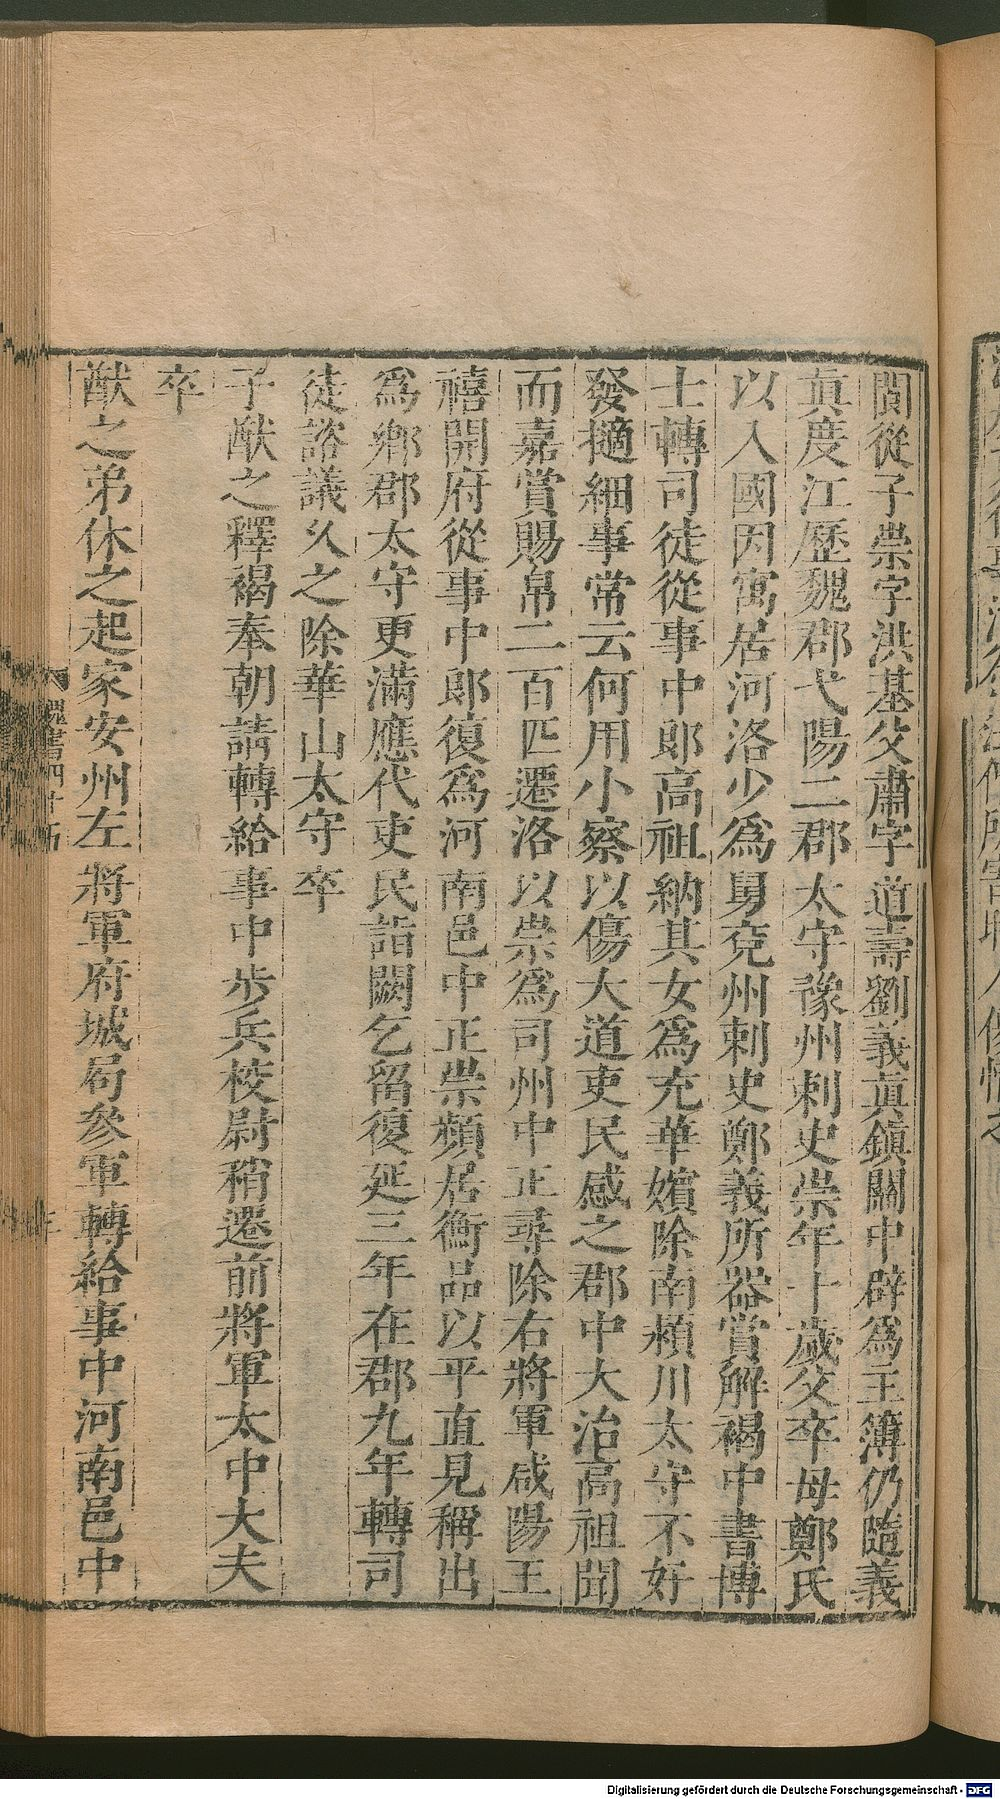 閬從子崇字洪基父肅字道壽劉義真鎮關中辟爲主簿仍隨義
真度江歷魏郡弋陽二郡太守豫州刺史崇年十歲父卒母鄭氏
以入國因寓居河洛少爲舅兖州刺史鄭義所器賞解褐中書博
士轉司徒從事中郎高祖納其女爲充華嬪除南潁川太守不好
發擿細事常云何用小察以傷大道吏民感之郡中大治高祖聞
而嘉賞賜帛二百匹遷洛以崇爲司州中正尋除右將軍咸陽王
禧開府從事中郎復爲河南邑中正崇頻居衡品以平直見稱出
爲鄉郡太守更滿應代吏民詣闕乞留復延三年在郡九年轉司
徒諮議久之除華山太守卒
子猷之釋褐奉朝請轉給事中步兵校尉稍遷前將軍太中大夫
卒
猷之弟休之起家安州左將軍府城局參軍轉給事中河南邑中
魏書四十五
Digitalisierung gefördert durch die Deutsche Forschungsgemeinschaft - DFG